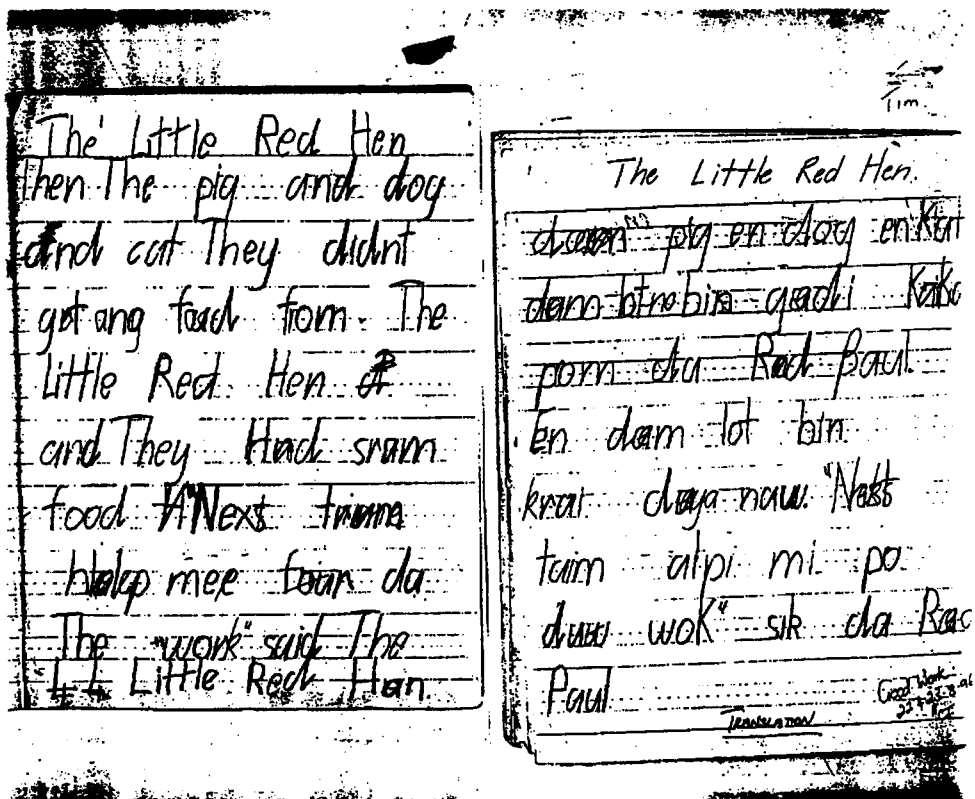 The Little Red Hen
Then The pig and dog
and cat They didnt
get ang food from. The
Little Red Hen
and They Had sram
food "Next
mee foar da
The "work" said The
Little Red Hen
Tim.
The Little Red Hen.
pig en dog en Kat
dam bin gadi
porm da Red Paul.
En dam lot bin
krai daya nauw. "Nekst
taim alpi mi po
duw wok" sik da Rad
Paul
TRANSLATION
Good Work